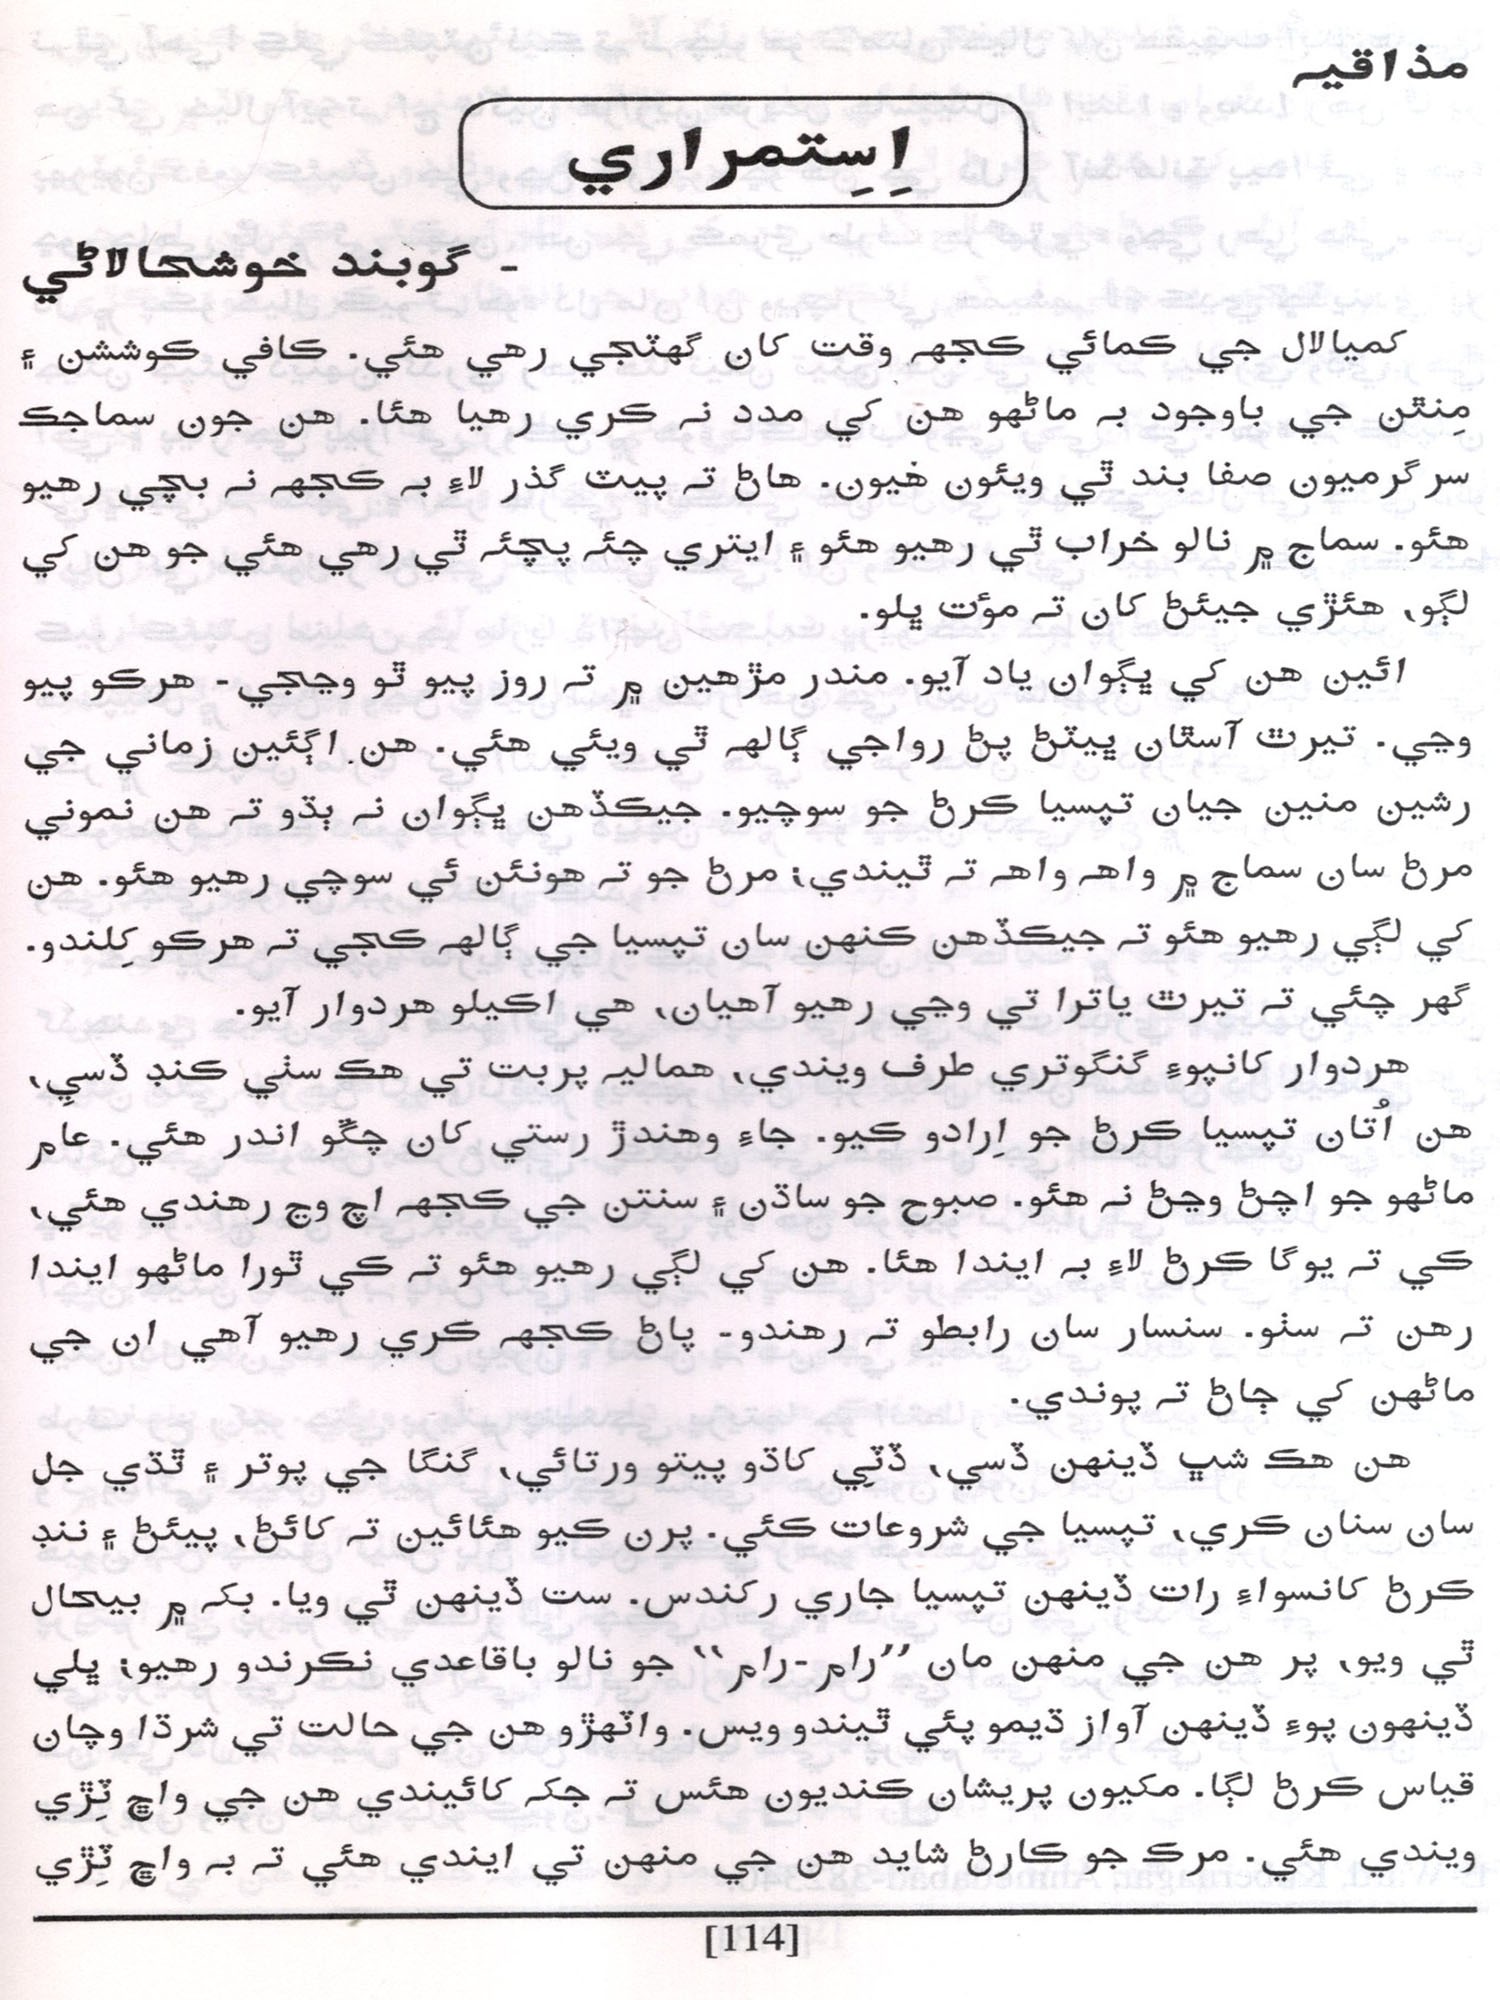 مذاقيہ
اِستمراري
- گوبند خوشحالاڻي
کميالال جي ڪمائي ڪجهہ وقت کان گهٽجي رهي هئي. ڪافي ڪوششن ۽
مِنٿن جي باوجود بہ ماڻهو هن کي مدد نہ ڪري رهيا هئا. هن جون سماجڪ
سرگرميون صفا بند ٿي ويئون هيون. هاڻ تہ پيٽ گذر لاءِ بہ ڪجهہ نہ بچي رهيو
هئو. سماج ۾ نالو خراب ٿي رهيو هئو ۽ ايتري چئہ پچئہ ٿي رهي هئي جو هن کي
لڳو، هئڙي جيئڻ کان تہ مؤت ڀلو.
ائين هن کي ڀڳوان ياد آيو. مندر مڙهين ۾ تہ روز پيو ٿو وڃجي- هرڪو پيو
وڃي. تيرٿ آسٿان ڀيٽڻ پڻ رواجي ڳالهہ ٿي ويئي هئي. هن اڳئين زماني جي
رشين منين جيان تپسيا ڪرڻ جو سوچيو. جيڪڏهن ڀڳوان نہ ٻڌو تہ هن نموني
مرڻ سان سماج ۾ واهہ واهہ تہ ٿيندي؛ مرڻ جو تہ هونئن ئي سوچي رهيو هئو. هن
کي لڳي رهيو هئو تہ جيڪڏهن ڪنهن سان تپسيا جي ڳالهہ ڪجي تہ هرڪو کِلندو.
گهر چئي تہ تيرٿ ياترا تي وڃي رهيو آهيان، هي اڪيلو هردوار آيو.
هردوار کانپوءِ گنگوتري طرف ويندي، هماليہ پربت تي هڪ سٺي ڪنڊ ڏسي،
هن اُتان تپسيا ڪرڻ جو اِرادو ڪيو. جاءِ وهندڙ رستي کان چڱو اندر هئي. عام
ماڻهو جو اچڻ وڃڻ نہ هئو. صبوح جو ساڌن ۽ سنتن جي ڪجهہ اچ وڃ رهندي هئي،
ڪي تہ يوگا ڪرڻ لاءِ بہ ايندا هئا. هن کي لڳي رهيو هئو تہ ڪي ٿورا ماڻهو ايندا
رهن تہ سٺو. سنسار سان رابطو تہ رهندو- پاڻ ڪجهہ ڪري رهيو آهي ان جي
ماڻهن کي ڄاڻ تہ پوندي.
هن هڪ شڀ ڏينهن ڏسي، ڏٽِي کاڌو پيتو ورتائي، گنگا جي پوتر ۽ ٿڌي جل
سان سنان ڪري، تپسيا جي شروعات ڪئي. پرن ڪيو هئائين تہ کائڻ، پيئڻ ۽ ننڊ
ڪرڻ کانسواءِ رات ڏينهن تپسيا جاري رکندس. ست ڏينهن ٿي ويا. بکہ ۾ بيحال
ٿي ويو، پر هن جي منهن مان ”رام-رام“ جو نالو باقاعدي نڪرندو رهيو؛ ڀلي
ڏينهون پوءِ ڏينهن آواز ڌيمو پئي ٿيندو ويس. واٽهڙو هن جي حالت تي شرڌا وچان
قياس ڪرڻ لڳا. مکيون پريشان ڪنديون هئس تہ جکہ کائيندي هن جي واڇ ٽِڙي
ويندي هئي. مرڪ جو ڪارڻ شايد هن جي منهن تي ايندي هئي تہ بہ واڇ ٽِڙي
[114]